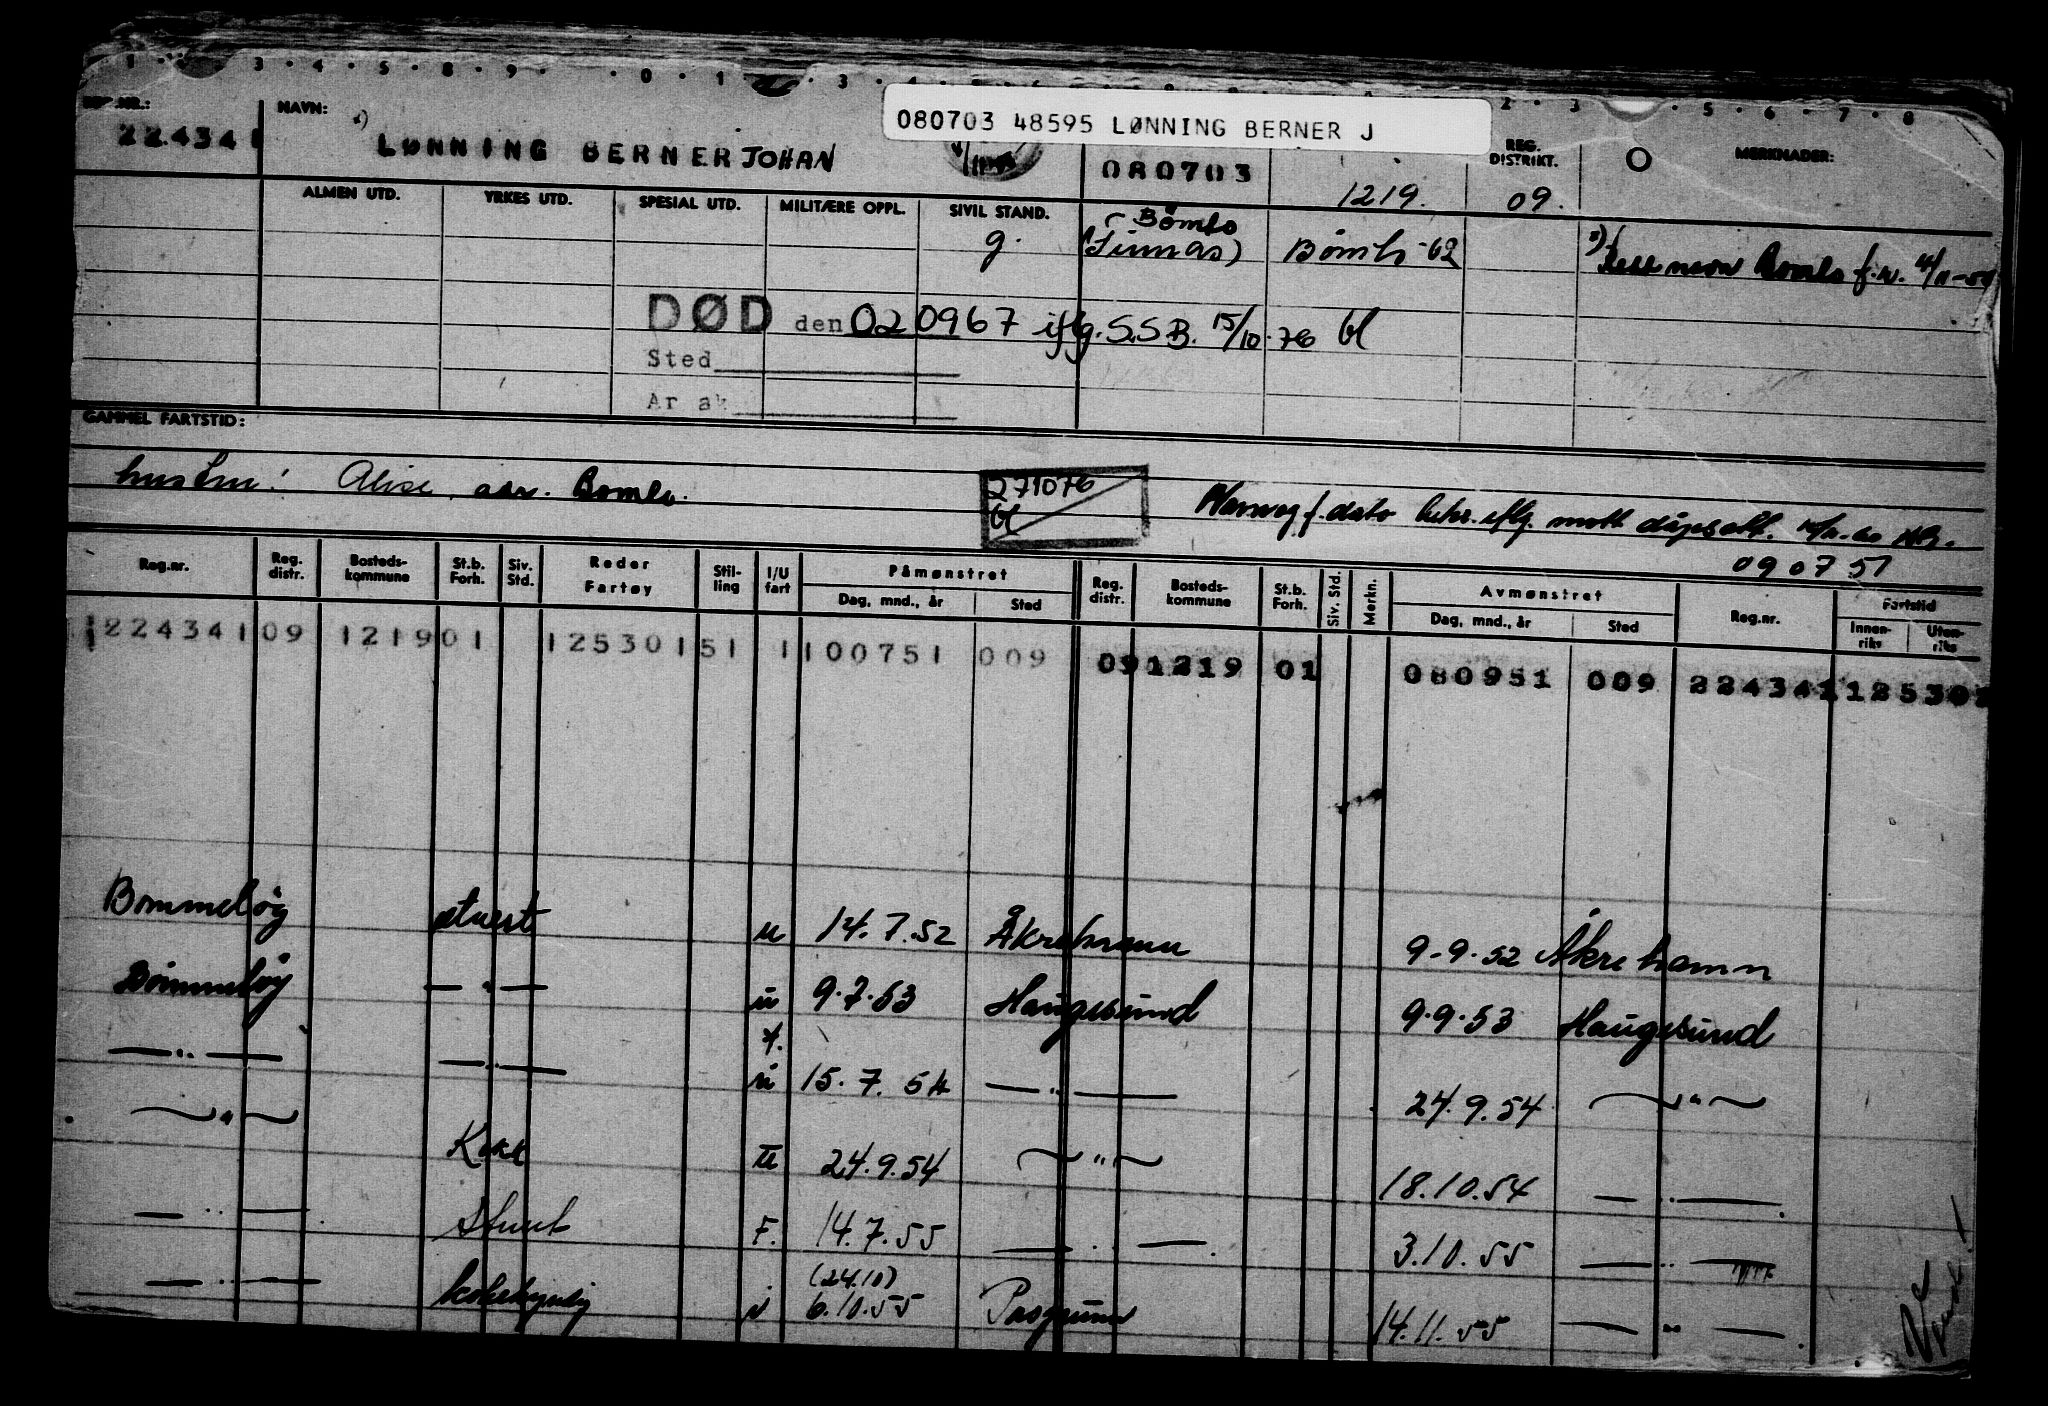 080703 48595 LØNNING BERNER J
NR.: NAVN: REG. DISTRIKT. MERKNADER:
22434 LØNNING BERNER JOHAN 080703 1219. 09.
ALMEN UTD. YRKES UTD. SPESIAL UTD. MILITÆRE OPPL. SIVIL STAND.
g. Bömlo
Bömlo -62
DØD den 020967 iflg. S.S.B. 15/10-76
Sted
GAMMEL FARTSTID:
hustru: Alise adr. Bømlo.
271076
f. dato
090751
Reg.nr. Reg. distr. Bosteds-kommune St.b. Forh. Siv. Std. Reder Fartøy Stil-ling I/U fart Påmønstret Dag, mnd., år Sted Reg. distr. Bosteds-kommune St.b. Forh. Siv. Std. Merkn. Avmønstret Dag, mnd., år Sted Reg.nr. Fartstid Innen-riks Uten-riks
224341 09 1219 01 125301 51 1 100751 009 09 1219 01 080951 009 224341
Bommeløy stuert u 14.7.52 Åkrehamn 9-9.52 Åkrehamn
Bömmeløy — " — u 9.7.53 Haugesund 9.9.53 Haugesund
— " — — " — 15.7.54 — " — 24.9.54 — " —
— " — Kokk 24.9.54 — " — 18.10.54 — " —
— " — Stuert F. 14.7.55 — " — 3.10.55 — " —
— " — (24.10) 6.10.55 14.11.55 — " —